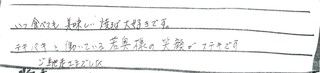 いつ食べても美味しい焼そば大好きです。
テキパキと働いている若奥様の笑顔がステキです
ご馳走さまでした